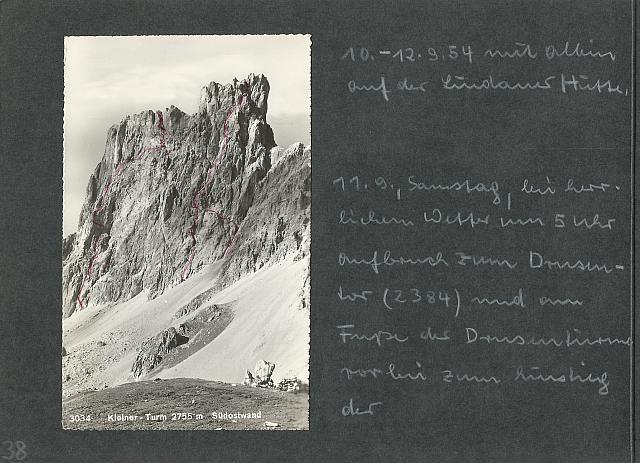 10.-12.9.54 mit Albin
auf der Lindauer Hütte.
11.9., Samstag, bei herr-
lichem Wetter um 5 Uhr
Aufbruch zum Drusen-
tor (2384) und am
Fuße der Drusentürme
vorbei zum Einstieg
der
3034 Kleiner-Turm 2755 m Südostwand
38